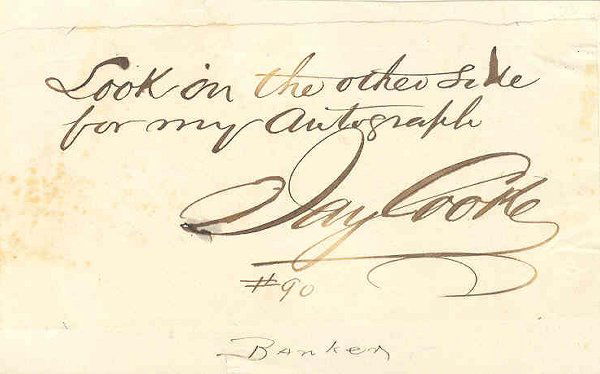 Look on the other side
for my Autograph
Jay Cooke
#90
Banker